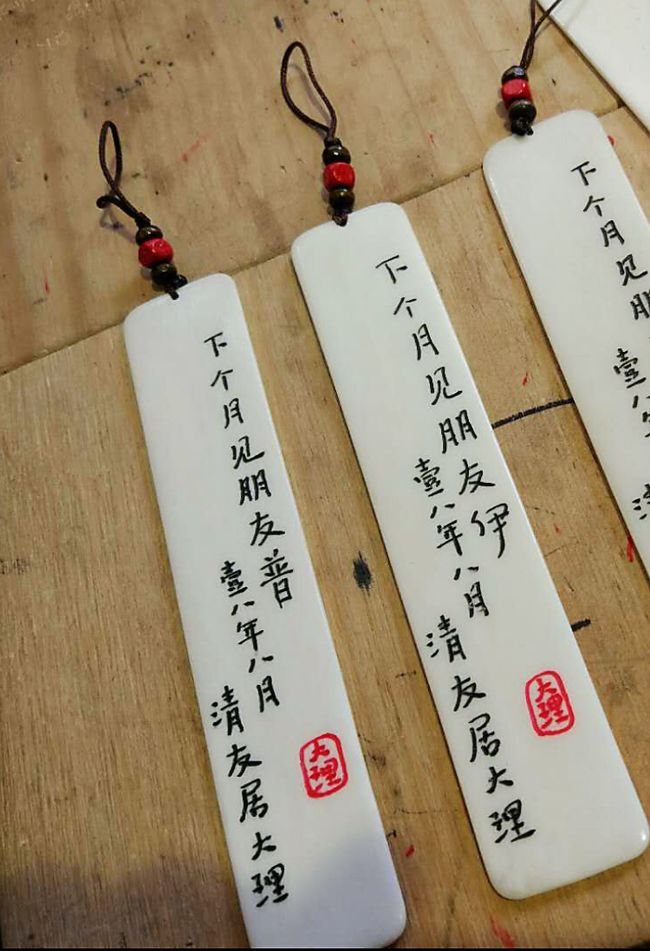 下个月见朋友普
壹八年八月
清友居大理
大理
下个月见朋友伊
壹八年八月
清友居大理
大理
下个月见朋
壹八年